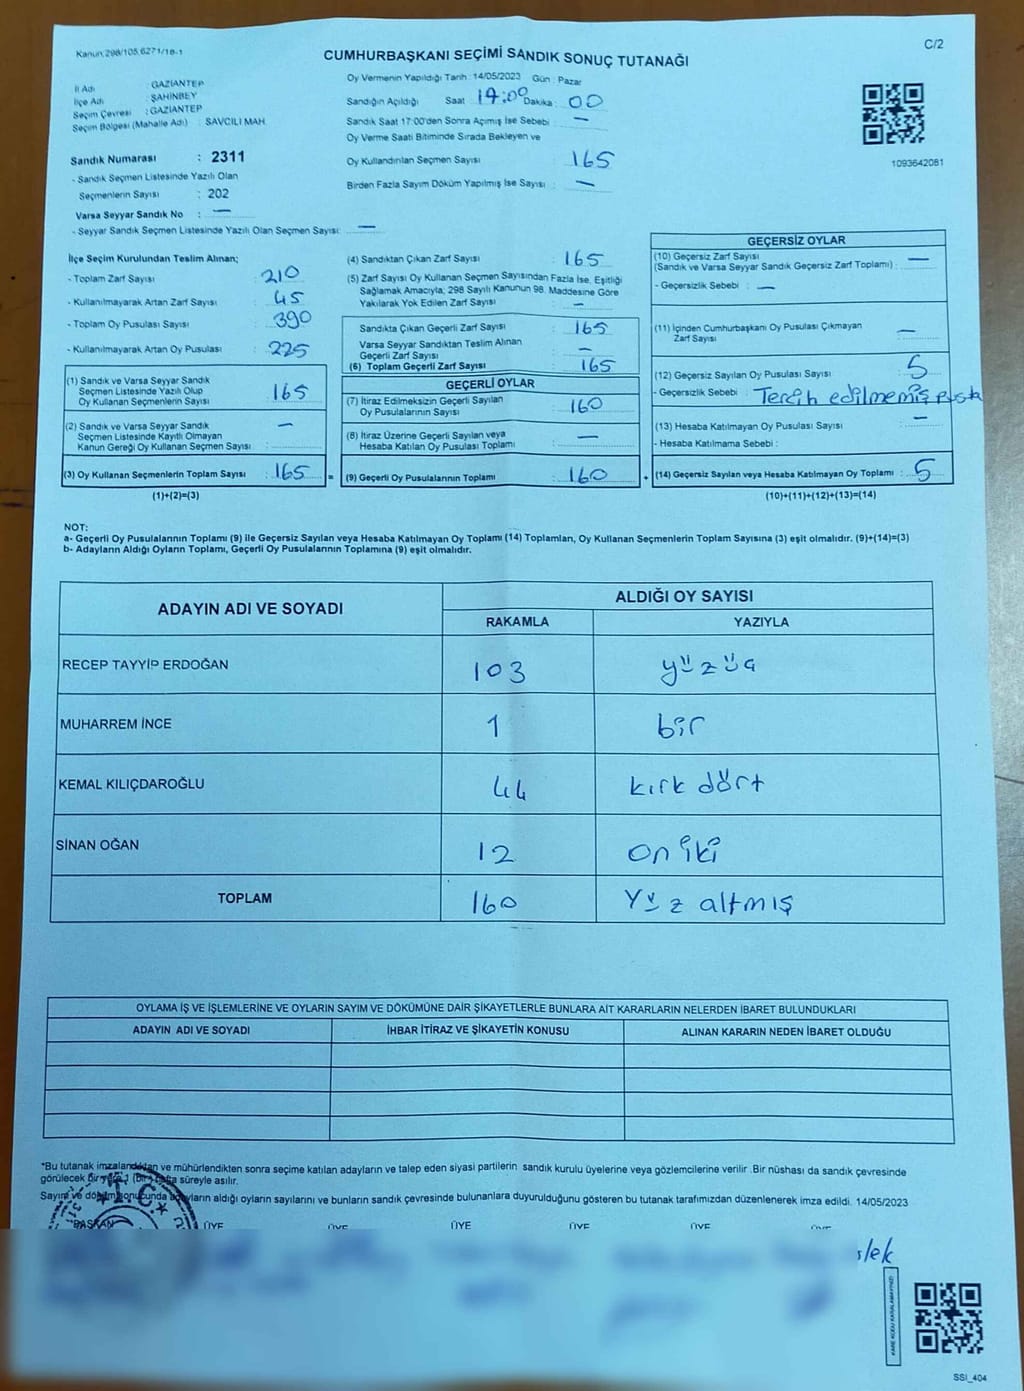 Kanun:298/105,6271/18-1
C/2
CUMHURBAŞKANI SEÇİMİ SANDIK SONUÇ TUTANAĞI
İl Adı : GAZİANTEP
İlçe Adı : ŞAHİNBEY
Seçim Çevresi : GAZİANTEP
Seçim Bölgesi (Mahalle Adı) : SAVCILI MAH.
Sandık Numarası : 2311
- Sandık Seçmen Listesinde Yazılı Olan
Seçmenlerin Sayısı : 202
Varsa Seyyar Sandık No : —
- Seyyar Sandık Seçmen Listesinde Yazılı Olan Seçmen Sayısı: —
Oy Vermenin Yapıldığı Tarih : 14/05/2023 Gün : Pazar
Sandığın Açıldığı Saat 17:00 Dakika : 00
Sandık Saat 17:00'den Sonra Açımış İse Sebebi : —
Oy Verme Saati Bitiminde Sırada Bekleyen ve
Oy Kullandırılan Seçmen Sayısı 165
Birden Fazla Sayım Döküm Yapılmış İse Sayısı : —
1093642081
İlçe Seçim Kurulundan Teslim Alınan;
- Toplam Zarf Sayısı : 210
- Kullanılmayarak Artan Zarf Sayısı : 45
- Toplam Oy Pusulası Sayısı : 390
- Kullanılmayarak Artan Oy Pusulası : 225
(1) Sandık ve Varsa Seyyar Sandık
Seçmen Listesinde Yazılı Olup
Oy Kullanan Seçmenlerin Sayısı : 165
(2) Sandık ve Varsa Seyyar Sandık
Seçmen Listesinde Kayıtlı Olmayan
Kanun Gereği Oy Kullanan Seçmen Sayısı : —
(3) Oy Kullanan Seçmenlerin Toplam Sayısı : 165 =
(1)+(2)=(3)
(4) Sandıktan Çıkan Zarf Sayısı : 165
(5) Zarf Sayısı Oy Kullanan Seçmen Sayısından Fazla İse, Eşitliği
Sağlamak Amacıyla; 298 Sayılı Kanunun 98. Maddesine Göre
Yakılarak Yok Edilen Zarf Sayısı : —
Sandıkta Çıkan Geçerli Zarf Sayısı : 165
Varsa Seyyar Sandıktan Teslim Alınan
Geçerli Zarf Sayısı : —
(6) Toplam Geçerli Zarf Sayısı : 165
GEÇERLİ OYLAR
(7) İtiraz Edilmeksizin Geçerli Sayılan
Oy Pusulalarının Sayısı : 160
(8) İtiraz Üzerine Geçerli Sayılan veya
Hesaba Katılan Oy Pusulası Toplamı : —
(9) Geçerli Oy Pusulalarının Toplamı : 160 +
GEÇERSİZ OYLAR
(10) Geçersiz Zarf Sayısı
(Sandık ve Varsa Seyyar Sandık Geçersiz Zarf Toplamı) : —
- Geçersizlik Sebebi : —
(11) İçinden Cumhurbaşkanı Oy Pusulası Çıkmayan
Zarf Sayısı : —
(12) Geçersiz Sayılan Oy Pusulası Sayısı : 5
- Geçersizlik Sebebi : Tercih edilmemiş
(13) Hesaba Katılmayan Oy Pusulası Sayısı : —
- Hesaba Katılmama Sebebi :
(14) Geçersiz Sayılan veya Hesaba Katılmayan Oy Toplamı : 5
(10)+(11)+(12)+(13)=(14)
NOT:
a- Geçerli Oy Pusulalarının Toplamı (9) ile Geçersiz Sayılan veya Hesaba Katılmayan Oy Toplamı (14) Toplamları, Oy Kullanan Seçmenlerin Toplam Sayısına (3) eşit olmalıdır. (9)+(14)=(3)
b- Adayların Aldığı Oyların Toplamı, Geçerli Oy Pusulalarının Toplamına (9) eşit olmalıdır.
ADAYIN ADI VE SOYADI
ALDIĞI OY SAYISI
RAKAMLA YAZIYLA
RECEP TAYYİP ERDOĞAN 103 yüzüç
MUHARREM İNCE 1 bir
KEMAL KILIÇDAROĞLU 44 kırk dört
SİNAN OĞAN 12 on iki
TOPLAM 160 Yüz altmış
OYLAMA İŞ VE İŞLEMLERİNE VE OYLARIN SAYIM VE DÖKÜMÜNE DAİR ŞİKAYETLERLE BUNLARA AİT KARARLARIN NELERDEN İBARET BULUNDUKLARI
ADAYIN ADI VE SOYADI İHBAR İTİRAZ VE ŞİKAYETİN KONUSU ALINAN KARARIN NEDEN İBARET OLDUĞU
*Bu tutanak imzalandıktan ve mühürlendikten sonra seçime katılan adayların ve talep eden siyasi partilerin sandık kurulu üyelerine veya gözlemcilerine verilir .Bir nüshası da sandık çevresinde
görülecek bir yere 1 (bir) hafta süreyle asılır.
Sayım ve döküm sonucunda adayların aldığı oyların sayılarını ve bunların sandık çevresinde bulunanlara duyurulduğunu gösteren bu tutanak tarafımızdan düzenlenerek imza edildi. 14/05/2023
BAŞKAN ÜYE ÜYE ÜYE ÜYE ÜYE ÜYE
T.C.
KARE KODU KARALAMAYINIZ!
SSI_404